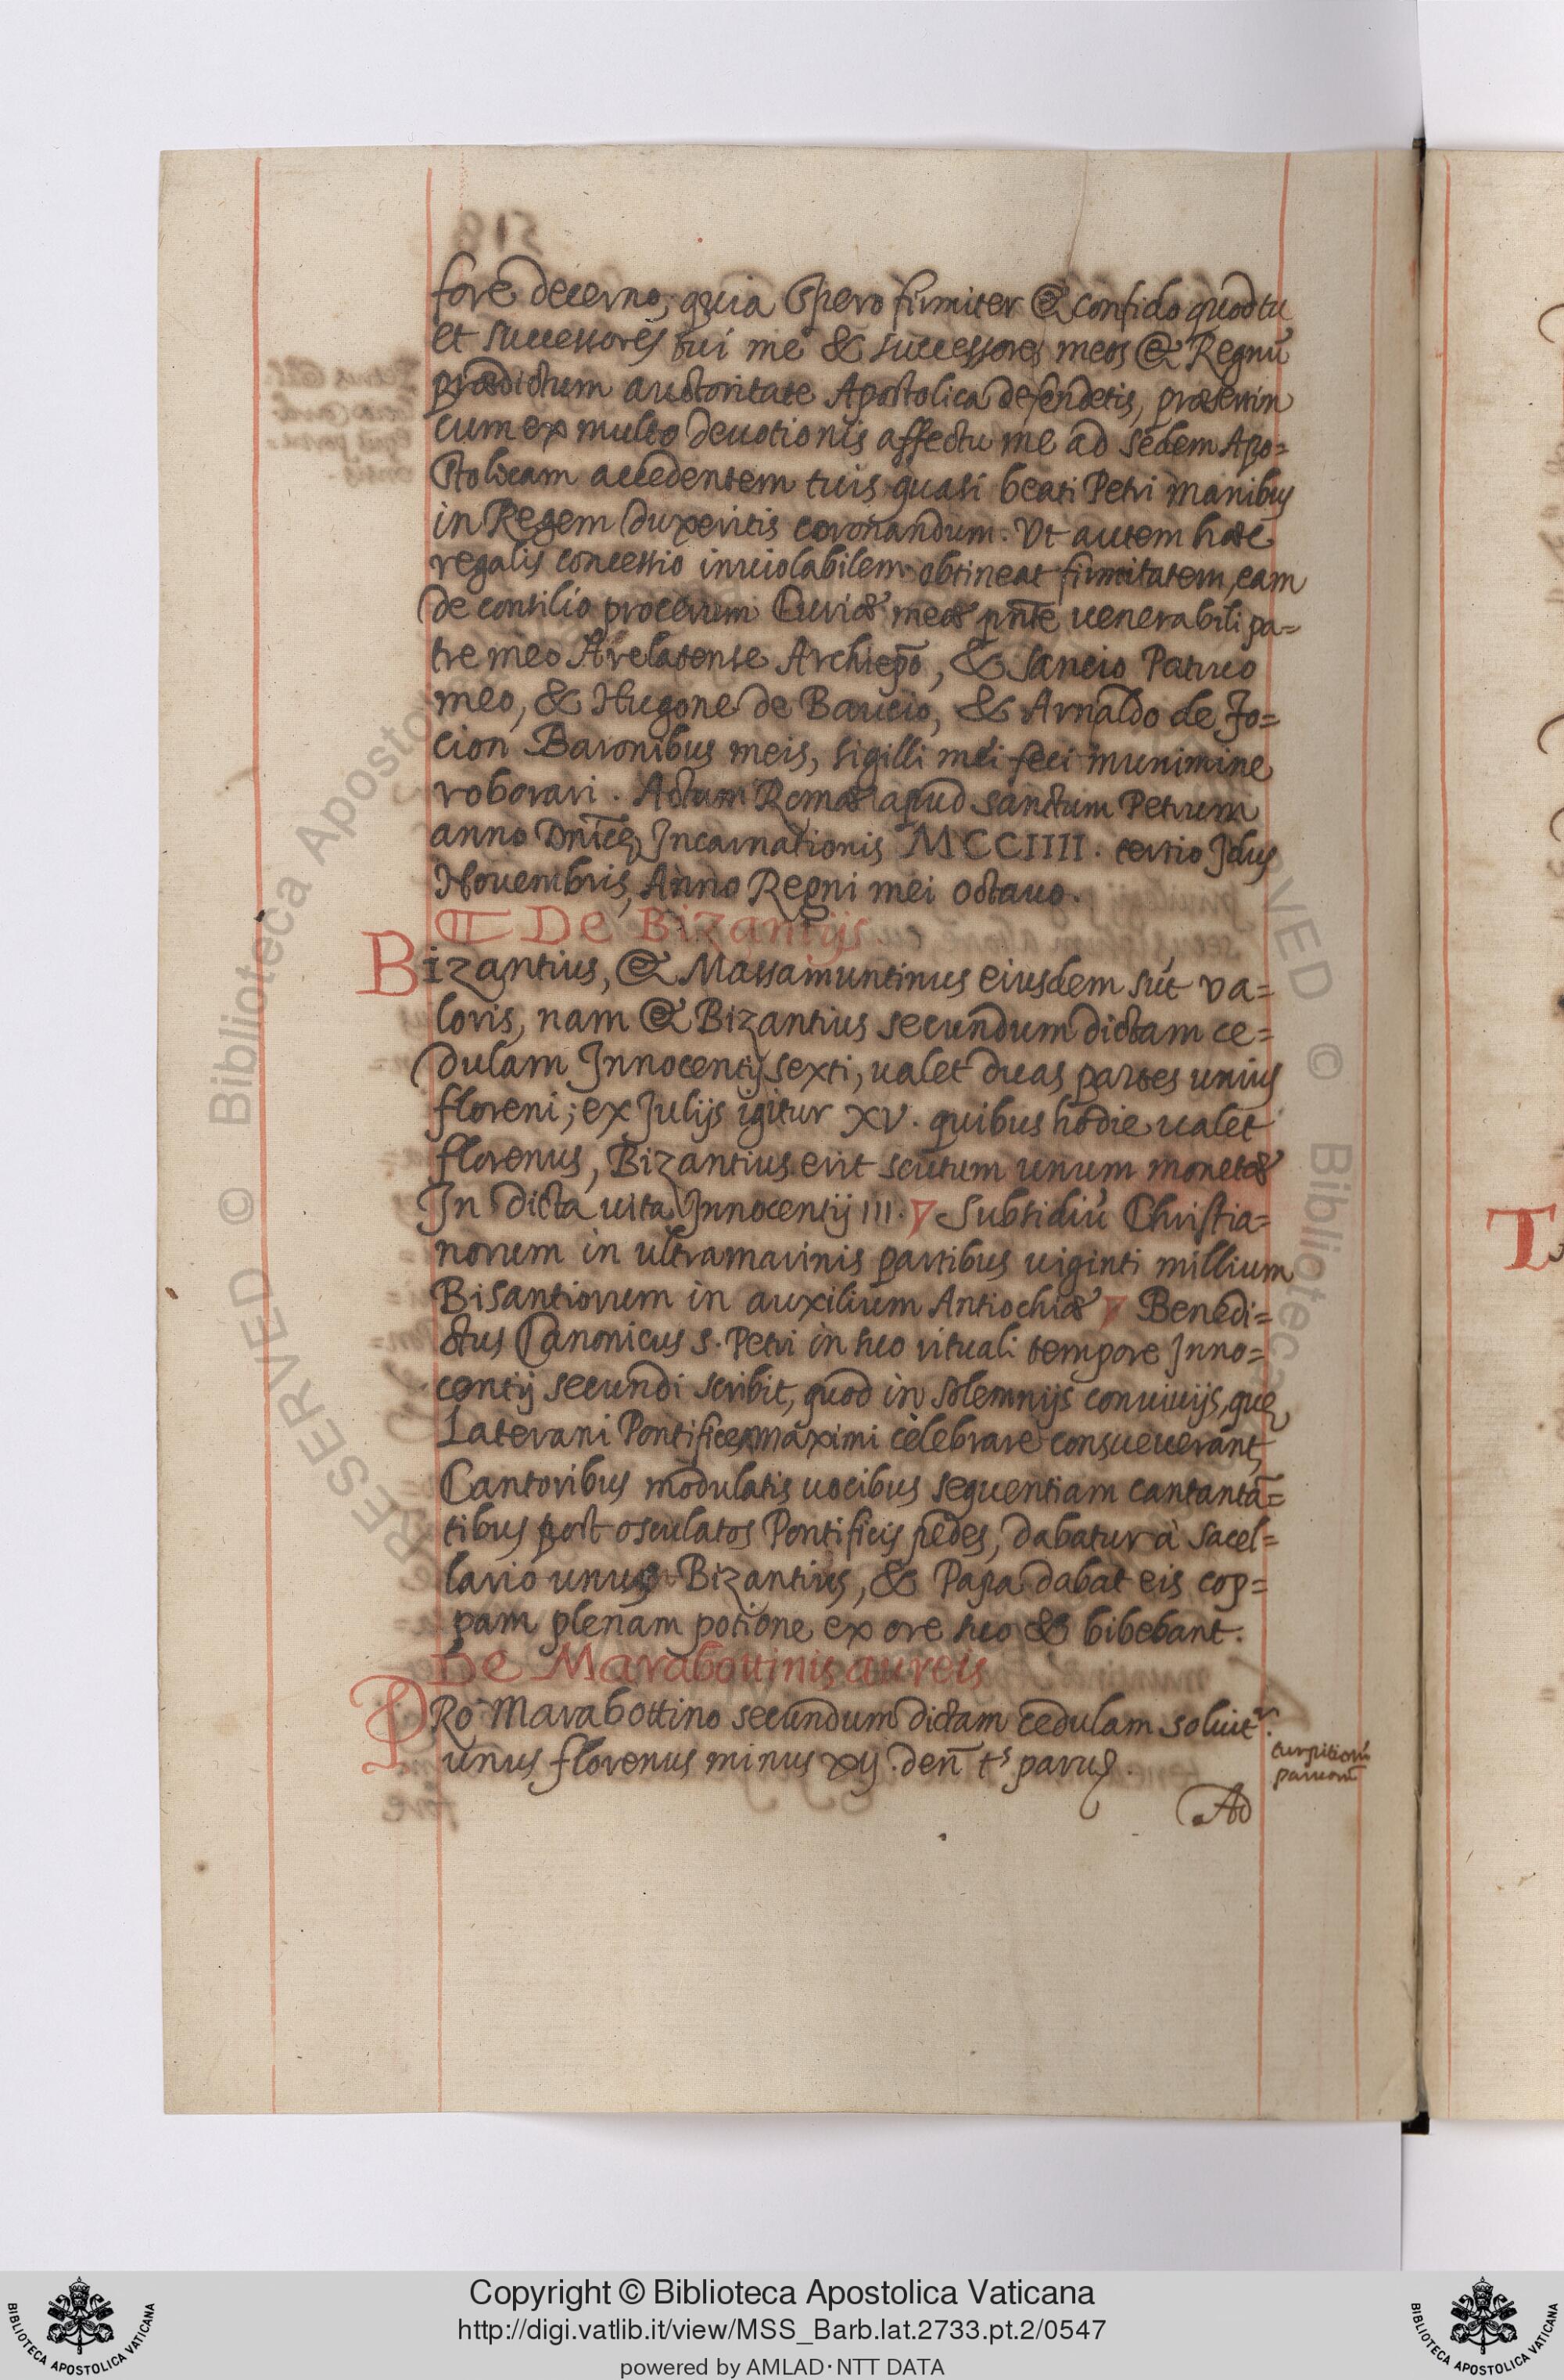 fore decerno, quia spero firmiter & confido quod tu
et successores tui me & successores meos & Regnū
prædictum auctoritate Apostolica defendetis, præsertim
cum ex multo deuotionis affectu me ad sedem Apo=
stolicam accedentem tuis quasi beati Petri manibus
in Regem duxeritis coronandum. Vt autem hæc
regalis concessio inuiolabilem obtineat firmitatem, eam
de consilio procerum Curiæ meæ pn̄te uenerabili pa=
tre meo Arelatense Archiepō, & Sancio Patruo
meo, & Hugone de Baucio, & Arnaldo de Fo=
cion Baronibus meis, sigilli mei feci munimine
roborari. Actum Romæ apud sanctum Petrum
anno Dn̄icę Incarnationis MCCIIII. tertio Idus
Nouembris, Anno Regni mei octauo.
De Bizantijs.
Bizantius, & Massamuntinus eiusdem sūt va=
loris, nam & Bizantius secundum dictam ce=
dulam Innocentij sexti, ualet duas partes unius
floreni; ex Julijs igitur XV. quibus hodie ualet
florenus, Bizantius erit scutum unum monetæ
In dicta uita Innocentij III. Subsidiū Christia=
norum in ultramarinis partibus uiginti millium
Bisantiorum in auxilium Antiochiæ Benedi=
ctus Canonicus S. Petri in suo rituali tempore Inno=
centij secundi scribit, quod in solemnijs conuiuijs, quę
Laterani Pontifices maximi celebrare consueuerant,
Cantoribus modulatis uocibus sequentiam cantantā=
tibus post osculatos Pontificis pedes, dabatur à sacel=
lario unus Bizantius, & Papa dabat eis cop=
pam plenam potione ex ore suo & bibebant.
De Marabottinis aureis
PRo Marabottino secundum dictam cedulam soluit^r.
unus florenus minus xij. den̄ t^s paruę.
paruorū
Ad
Copyright © Biblioteca Apostolica Vaticana
http://digi.vatlib.it/view/MSS_Barb.lat.2733.pt.2/0547
powered by AMLAD·NTT DATA
BIBLIOTECA APOSTOLICA VATICANA
BIBLIOTECA APOSTOLICA VATICANA